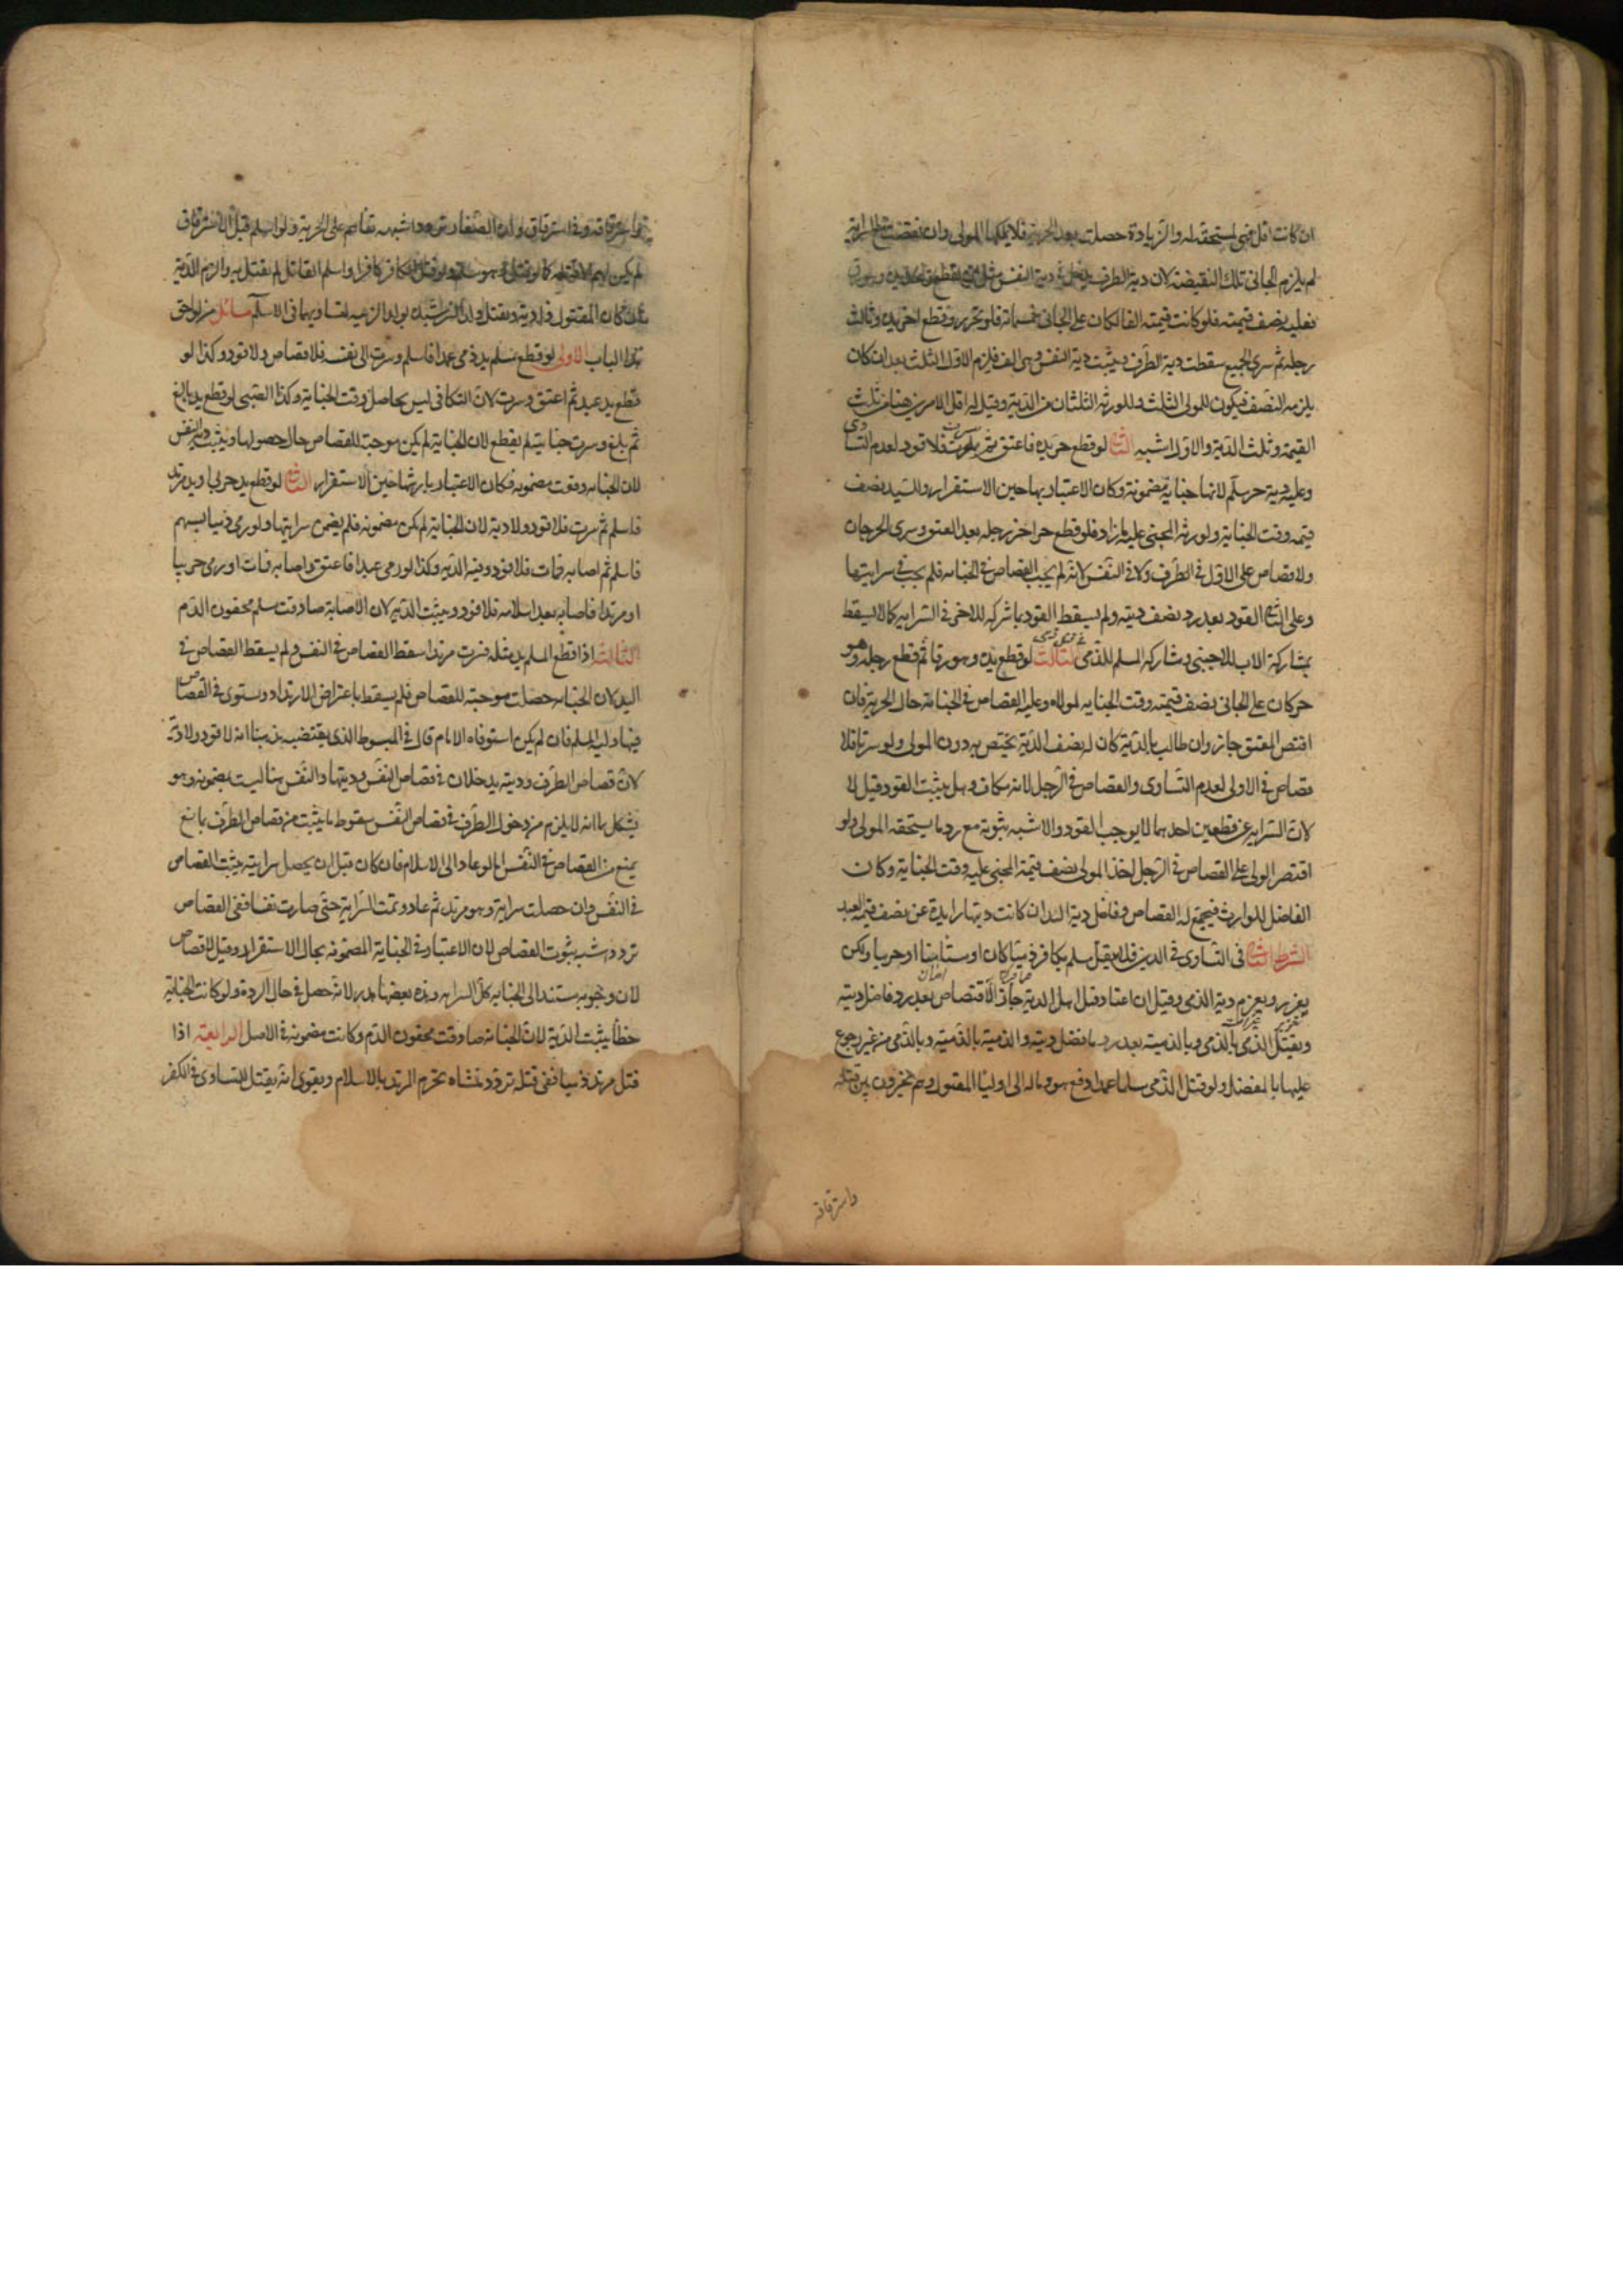 ان كانت اقل فهى المستحقة له والزيادة حصلت بعد الحرية فلا يملكها المولى وان نقصت مع السراية
لم يلزم الجانى تلك النقيصة لان دية الطرف يدخل فى دية النفس مثل ان يقطع واحد يده وهو رق
فعليه نصف قيمته فلو كانت قيمته الفا لكان على الجانى خمسمائة فلو تحرر وقطع اخر يده وثالث
رجله ثم سرى الجميع سقطت دية الطرف ويثبت دية النفس وهى الف فلزم الاول الثلث بعد ان كان
يلزمه النصف فيكون للمولى الثلث وللورثة الثلثان من الدية وقيل له اقل الامرين هنا من ثلث
القيمة وثلث الدية والاول اشبه الثانية لو قطع حر يده فاعتق ثم سرت فلا قود لعدم التساوى
وعليه دية حر مسلم لانها جناية مضمونة وكان الاعتبار بها حين الاستقرار وللسيد نصف
قيمه وقت الجناية ولورثة المجنى عليه ما زاد فلو قطع حر اخر رجله بعد العتق وسرى الجرحان
ولا قصاص على الاول فى الطرف ولا فى النفس لانه لم يجب القصاص فى الجنايه فلم يجب فى سرايتها
وعلى الثانى القود بعد رد نصف ديته ولم يسقط القود بمشاركه الاخر فى السرايه كما لا يسقط
بمشاركة الاب للاجنبى ومشاركه المسلم للذمى فى قتل ذمى الثالثة لو قطع يده وهو رق ثم قطع رجله وهو
حر كان على الجانى نصف قيمته وقت الجنايه لمولاه وعليه القصاص فى الجناية حال الحرية فان
اقتص المعتق جاز وان طالب بالدية كان له نصف الدية يختص به دون المولى ولو سرتا فلا
قصاص فى الاولى لعدم التساوى والقصاص فى الرجل لانه مكاف وهل يثبت القود قيل لا
لان السرايه عن قطعين احدهما لا يوجب القود والاشبه ثبوته مع رد ما يستحقه المولى ولو
اقتصر الولى على القصاص فى الرجل اخذ المولى نصف قيمة المجنى عليه وقت الجناية وكان
الفاضل للوارث فيجتمع له القصاص وفاضل دية اليد ان كانت ديتها زايدة عن نصف قيمة العبد
الشرط الثانى فى التساوى فى الدين فلا يقتل مسلم بكافر ذميا كان او مستامنا او حربيا ولكن
يعزر ويغرم دية الذمى وقيل ان اعتاد قتل اهل الذمة جاز الاقتصاص بعد رد فاضل ديته
ويقتل الذمى بالذمى وبالذمية بعد رد ما فضل ديته والذمية بالذمية وبالذمى من غير رجوع
عليها بالفضل ولو قتل الذمى مسلما عمدا دفع هو وماله الى اوليا المقتول وهم مخيرون بين قتله
واسترقاقه
واسترقاقه وفى استرقاق ولده الصغار تردد اشبهه بقاؤهم على الحرية ولو اسلم قبل الاسترقاق
لم يكن لهم الا قتله كما لو قتل وهو مسلم ولو قتل الكافر كافرا واسلم القاتل لم يقتل به والزم الدية
ان كان المقتول ذا دية ويقتل ولد الرشيدة بولد الزنية لتساويهما فى الاسلام مسائل من لواحق
هذا الباب الاولى لو قطع مسلم يد ذمى عمدا فاسلم وسرت الى نفسه فلا قصاص ولا قود وكذا لو
قطع يد عبد ثم اعتق وسرت لان التكافى ليس بحاصل وقت الجناية وكذا الصبى لو قطع يد بالغ
ثم بلغ وسرت جنايته لم يقطع لان الجناية لم يكن موجبة للقصاص حال حصولها ويثبت دية النفس
لان الجنايه وقعت مضمونه فكان الاعتبار بارشها حين الاستقرار الثانية لو قطع يد حربى او يد مرتد
فاسلم ثم سرت فلا قود ولا دية لان الجناية لم يكن مضمونه فلم يضمن سرايتها ولو رمى ذميا بسهم
فاسلم ثم اصابه فمات فلا قود وفيه الديه وكذا لو رمى عبدا فاعتق واصابه فمات او رمى حربيا
او مرتدا فاصابه بعد اسلامه فلا قود ويثبت الديه لان الاصابة صادفت مسلم محقون الدم
الثالثة اذا قطع المسلم يد مثله فسرت مرتدا سقط القصاص فى النفس ولم يسقط القصاص فى
اليد لان الجنايه حصلت موجبه للقصاص فلم يسقط باعتراض الارتداد ويستوى فى القصاص
فيها وليه المسلم فان لم يكن استوفاه الامام قال فى المبسوط الذى يقتضيه مذهبنا انه لا قود ولا دية
لان قصاص الطرف وديته يدخلان فى قصاص النفس وديتها والنفس هنا ليست مضمونه وهو
يشكل بما انه لا يلزم من دخول الطرف فى قصاص النفس سقوط ما يثبت من قصاص الطرف بمانع
يمنع من القصاص فى النفس اما لو عاد الى الاسلام فان كان قبل ان يحصل سراية يثبت القصاص
فى النفس وان حصلت سراية وهو مرتد ثم عاد وتمت السراية حتى صارت نفسا ففى القصاص
تردد اشبهه ثبوت القصاص لان الاعتبار فى الجناية المضمونه بحال الاستقرار وقيل لا قصاص
لان وجوبه مستند الى الجنايه وكل السرايه وهذه بعضها هدر لانه حصل فى حال الردة ولو كانت الجناية
خطأ يثبت الدية لان الجنايه صادفت محقون الدم وكانت مضمونه فى الاصل الرابعة اذا
قتل مرتد ذميا ففى قتله تردد منشاه تحرم المرتد بالاسلام ويقوى انه يقتل للتساوى فى الكفر